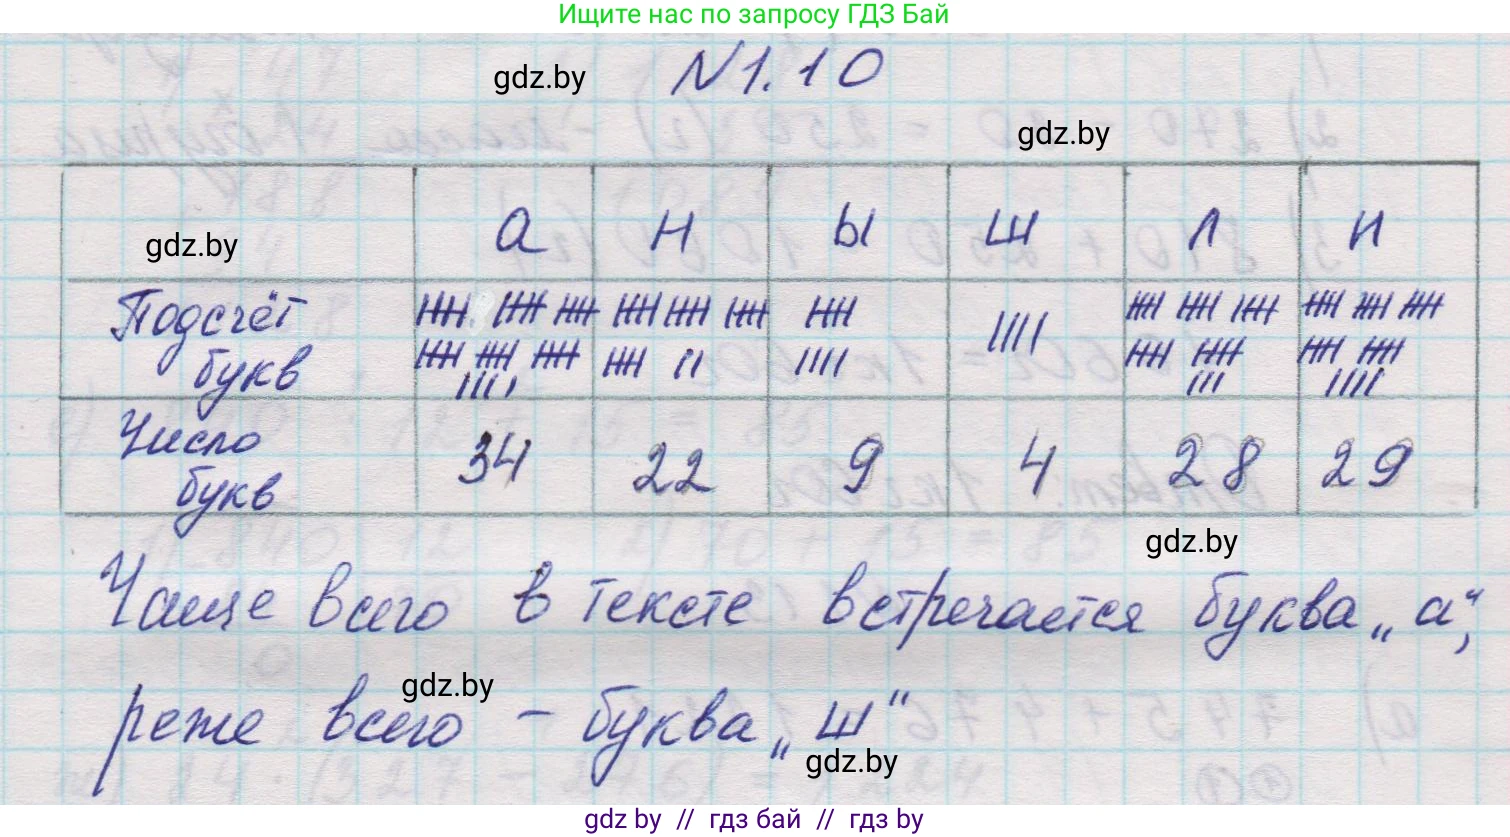 Ищите нас по запросу ГДЗ Бай
gdz.by
N1.10
gdz.by
gdz.by
а н ы ш л и
Подсчёт
букв
Число
букв
34 22 9 4 28 29
gdz.by
Чаще всего в тексте встречается буква „а“,
gdz.by
реже всего – буква „ш“
gdz.by
gdz by // гдз бай // гдз by